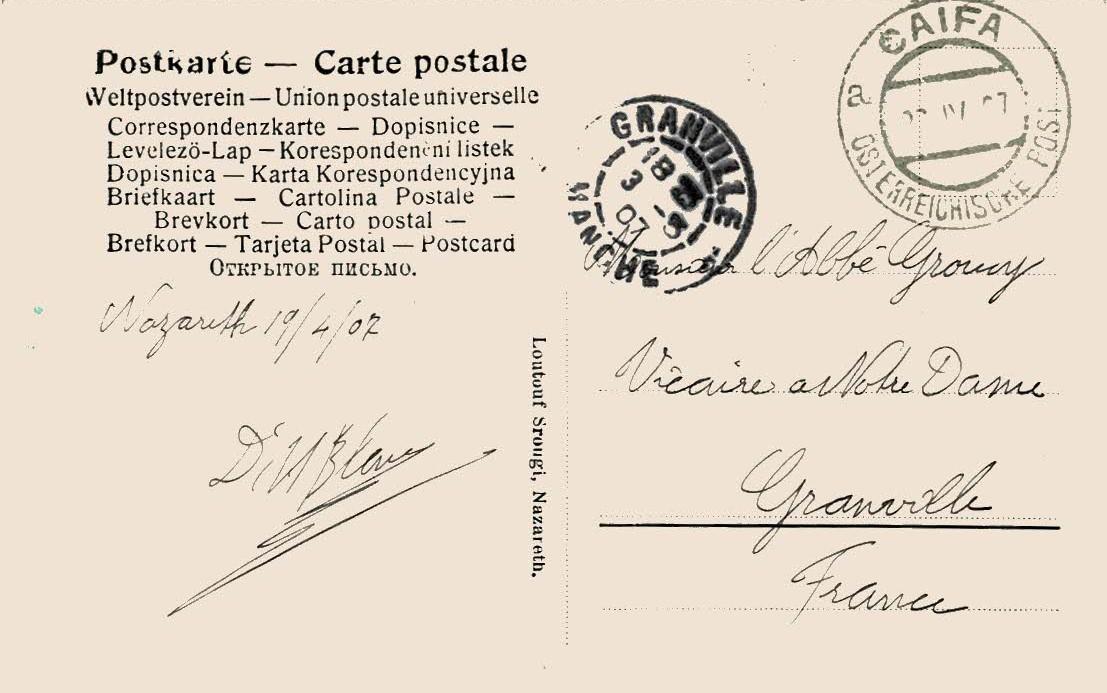 Postkarte — Carte postale
Weltpostverein — Union postale universelle
Correspondenzkarte — Dopisnice —
Levelezö-Lap — Korespondenční listek
Dopisnica — Karta Korespondencyjna
Briefkaart — Cartolina Postale —
Brevkort — Carto postal —
Brefkort — Tarjeta Postal — Postcard
Открытое письмо.
Nazareth 19/4/07
Loutouf Srougi, Nazareth.
CAIFA
a
IV 07
ÖSTERREICHISCHE POST
GRANVILLE
18
3 -5
07
MANCHE
Monsieur l'Abbé Grouvy
Vicaire a Notre Dame
Granville
France